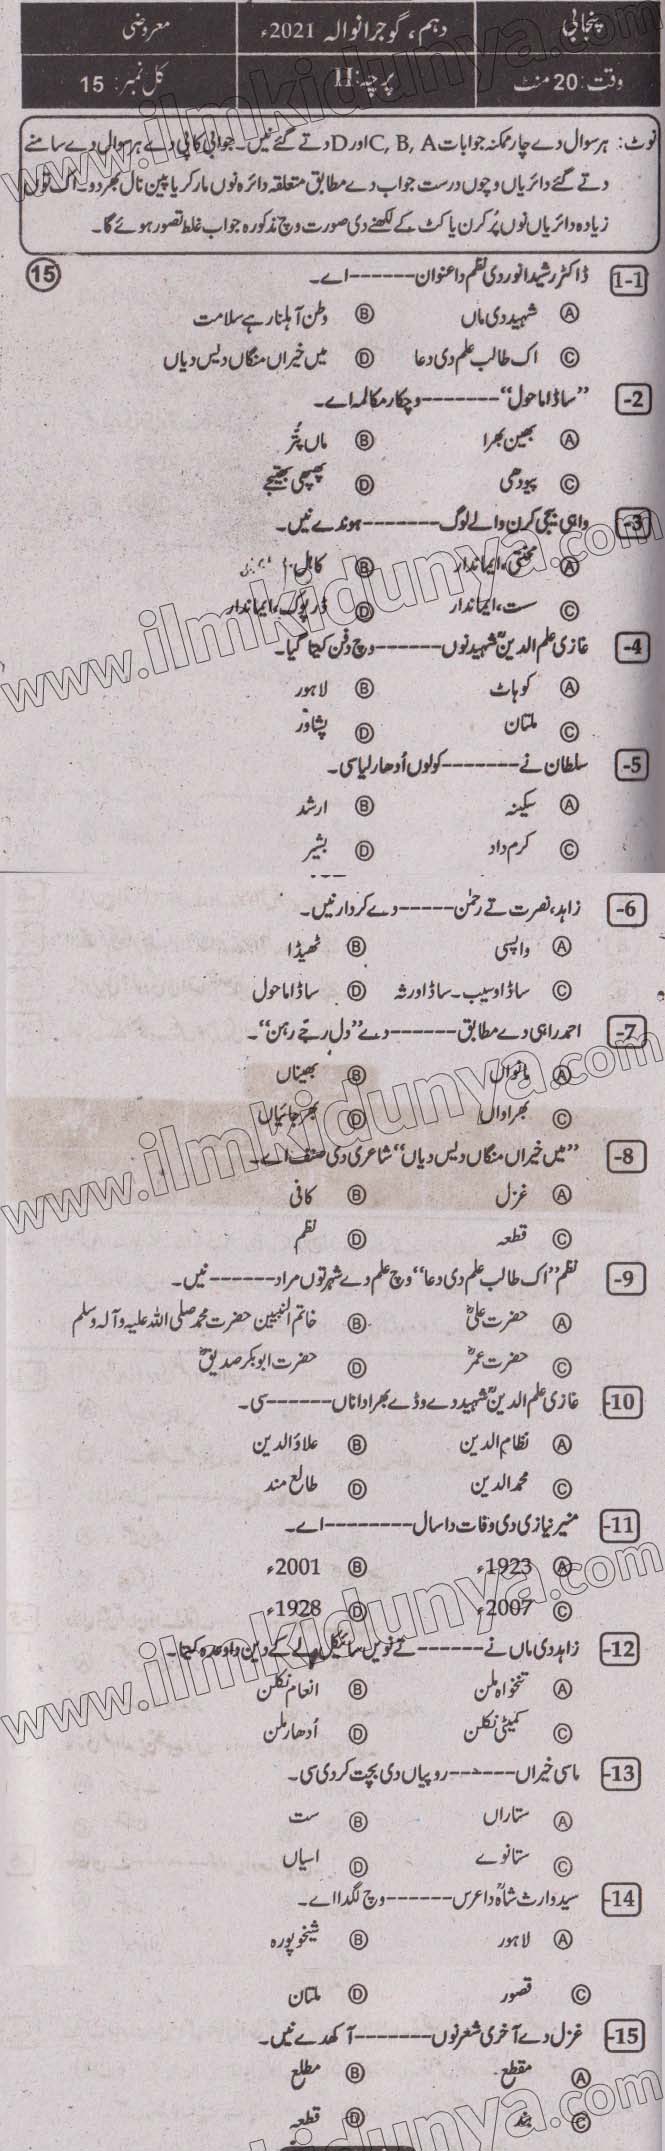 پنجابی
دہم، گوجرانوالہ 2021ء
معروضی
وقت: 20 منٹ
پرچہ: II
کل نمبر: 15
نوٹ: ہر سوال دے چار ممکنہ جوابات C, B, A اور D دتے گئے نیں۔ جوابی کاپی دے ہر سوال دے سامنے
دتے گئے دائریاں وچوں درست جواب دے مطابق متعلقہ دائرہ نوں مارکر یا پین نال بھر دو۔ اک توں
زیادہ دائریاں نوں پُر کرن یا کٹ کے لکھنے دی صورت وچ مذکورہ جواب غلط تصور ہوئے گا۔
1-1 ڈاکٹر رشید انور دی نظم دا عنوان ------ اے۔ (15)
(A) شہید دی ماں (B) وطن آہلنا رہے سلامت
(C) اک طالب علم دی دعا (D) میں خیراں منگاں دیس دیاں
-2 ”ساڈا ماحول“ ------- وچکار مکالمہ اے۔
(A) بھین بھرا (B) ماں پتر
(C) پیو دھی (D) پھپھی بھتیجے
-3 واہی بیجی کرن والے لوگ ------- ہوندے نیں۔
(A) محنتی، ایماندار (B) کاہل
(C) ست، ایماندار (D) ڈرپوک، ایماندار
-4 غازی علم الدینؒ شہید نوں ------ وچ دفن کیتا گیا۔
(A) کوہاٹ (B) لاہور
(C) ملتان (D) پشاور
-5 سلطان نے ------- کولوں اُدھار لیا سی۔
(A) سکینہ (B) ارشد
(C) کرم داد (D) بشیر
-6 زاہد، نصرت تے رحمٰن ----- دے کردار نیں۔
(A) واپسی (B) ٹھیڈا
(C) ساڈا وسیب۔ ساڈا ورثہ (D) ساڈا ماحول
-7 احمد راہی دے مطابق ------ دے ”دل رجے رہن“۔
(A) مانواں (B) بھیناں
(C) بھراواں (D) بھرجائیاں
-8 ”میں خیراں منگاں دیس دیاں“ شاعری دی صنف اے۔
(A) غزل (B) کافی
(C) قطعہ (D) نظم
-9 نظم ”اک طالب علم دی دعا“ وچ علم دے شہر توں مراد ------ نیں۔
(A) حضرت علیؓ (B) خاتم النبیین حضرت محمد صلی اللہ علیہ وآلہ وسلم
(C) حضرت عمرؓ (D) حضرت ابوبکر صدیقؓ
-10 غازی علم الدینؒ شہید دے وڈے بھرا دا ناں ------ سی۔
(A) نظام الدین (B) علاؤالدین
(C) محمد الدین (D) طالع مند
-11 منیر نیازی دی وفات دا سال ------- اے۔
(A) 1923ء (B) 2001ء
(C) 2007ء (D) 1928ء
-12 زاہد دی ماں نے ------ تے نویں سائیکل لے کے دین دا وعدہ کیتا۔
(A) تنخواہ ملن (B) انعام نکلن
(C) کمیٹی نکلن (D) اُدھار ملن
-13 ماسی خیراں ------ روپیاں دی بچت کر دی سی۔
(A) ستاراں (B) ست
(C) ستانوے (D) اسیاں
-14 سید وارث شاہؒ دا عرس ------ وچ لگدا اے۔
(A) لاہور (B) شیخوپورہ
(C) قصور (D) ملتان
-15 غزل دے آخری شعر نوں ------- آکھدے نیں۔
(A) مقطع (B) مطلع
(C) بند (D) قطعہ
www.ilmkidunya.com
www.ilmkidunya.com
www.ilmkidunya.com
www.ilmkidunya.com
www.ilmkidunya.com